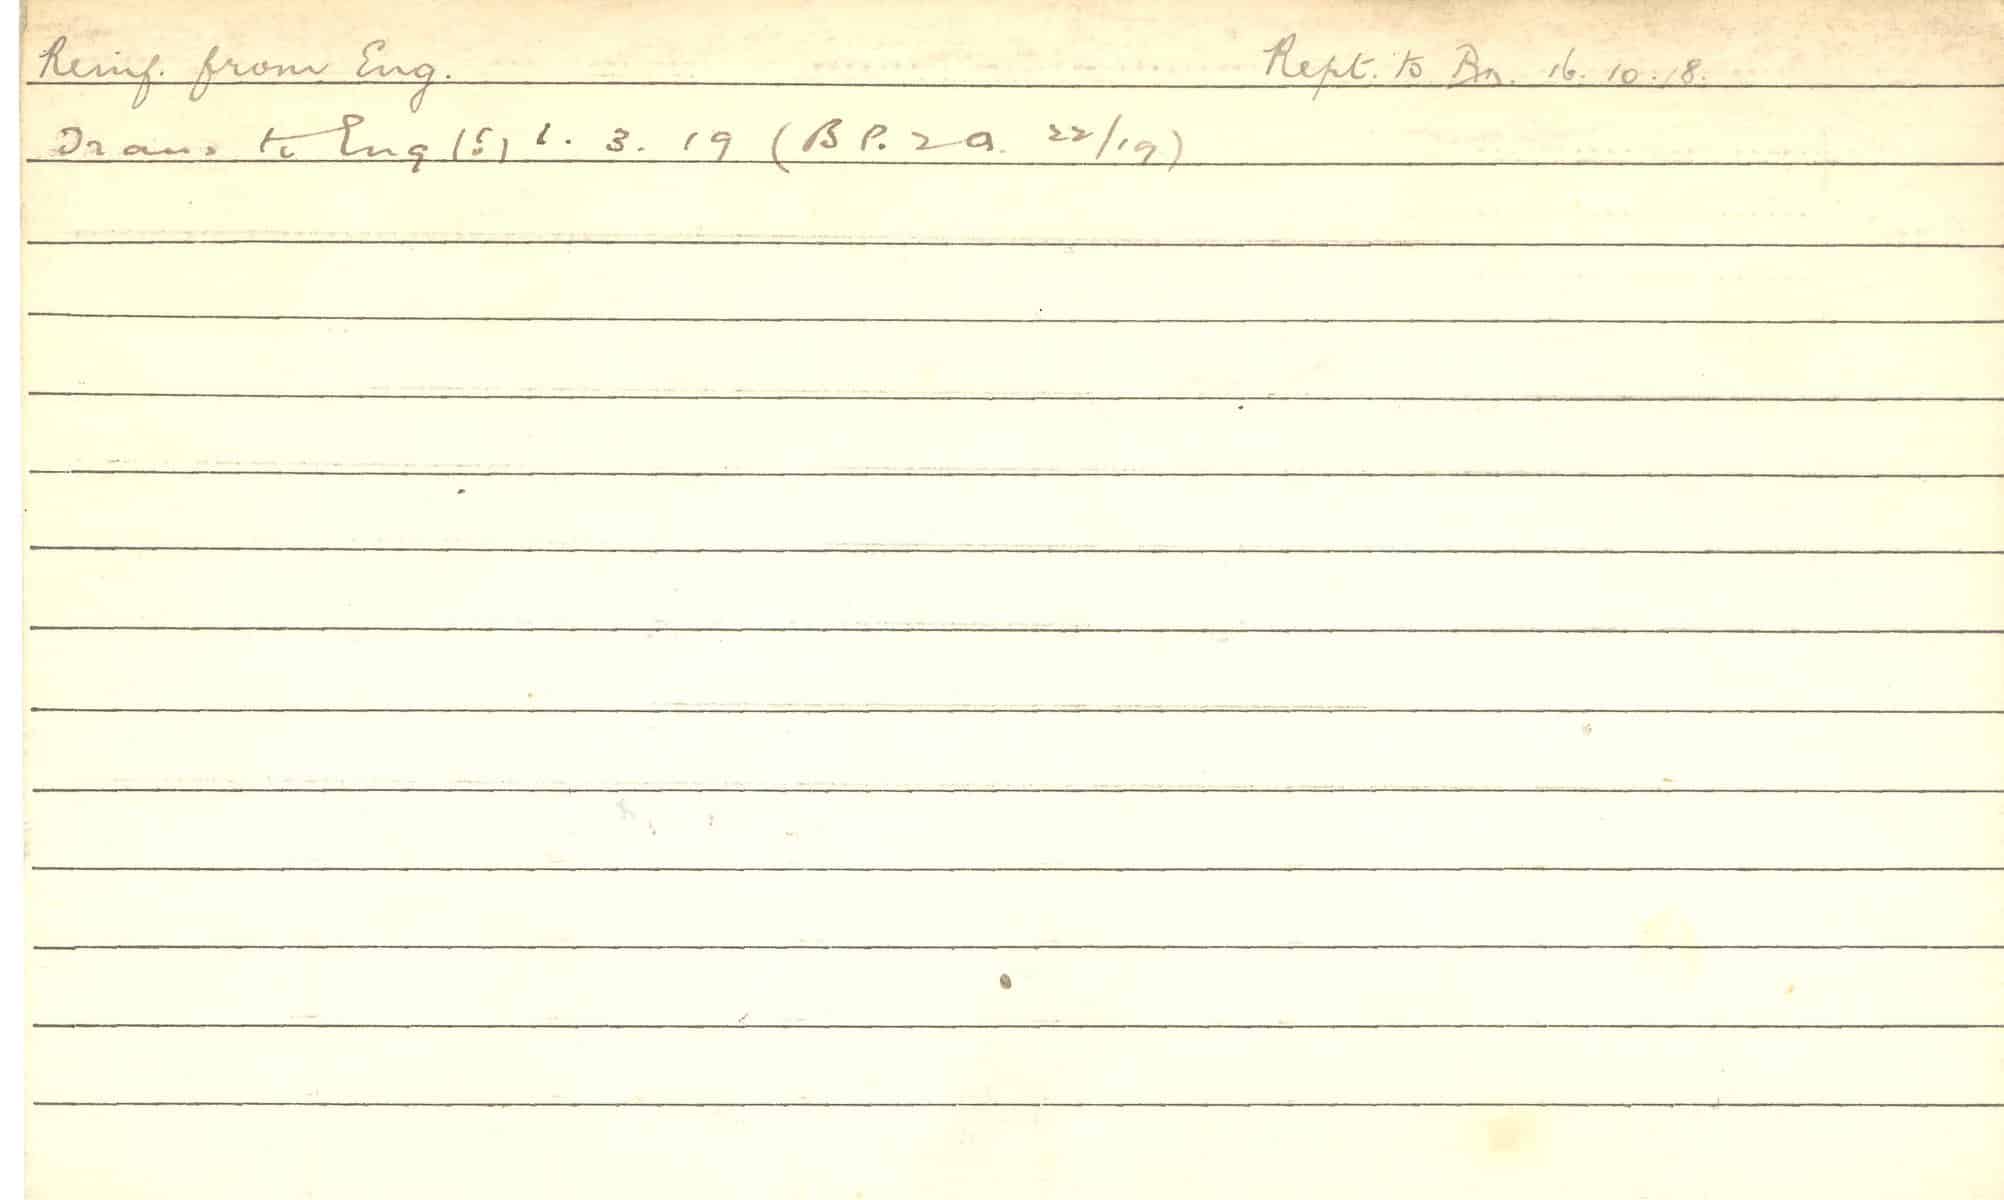 Reinf. from Eng. Rept. to Bn. 16.10.18.
Trans to Eng (S) 1.3.19 (B P. 2a. 22/19)